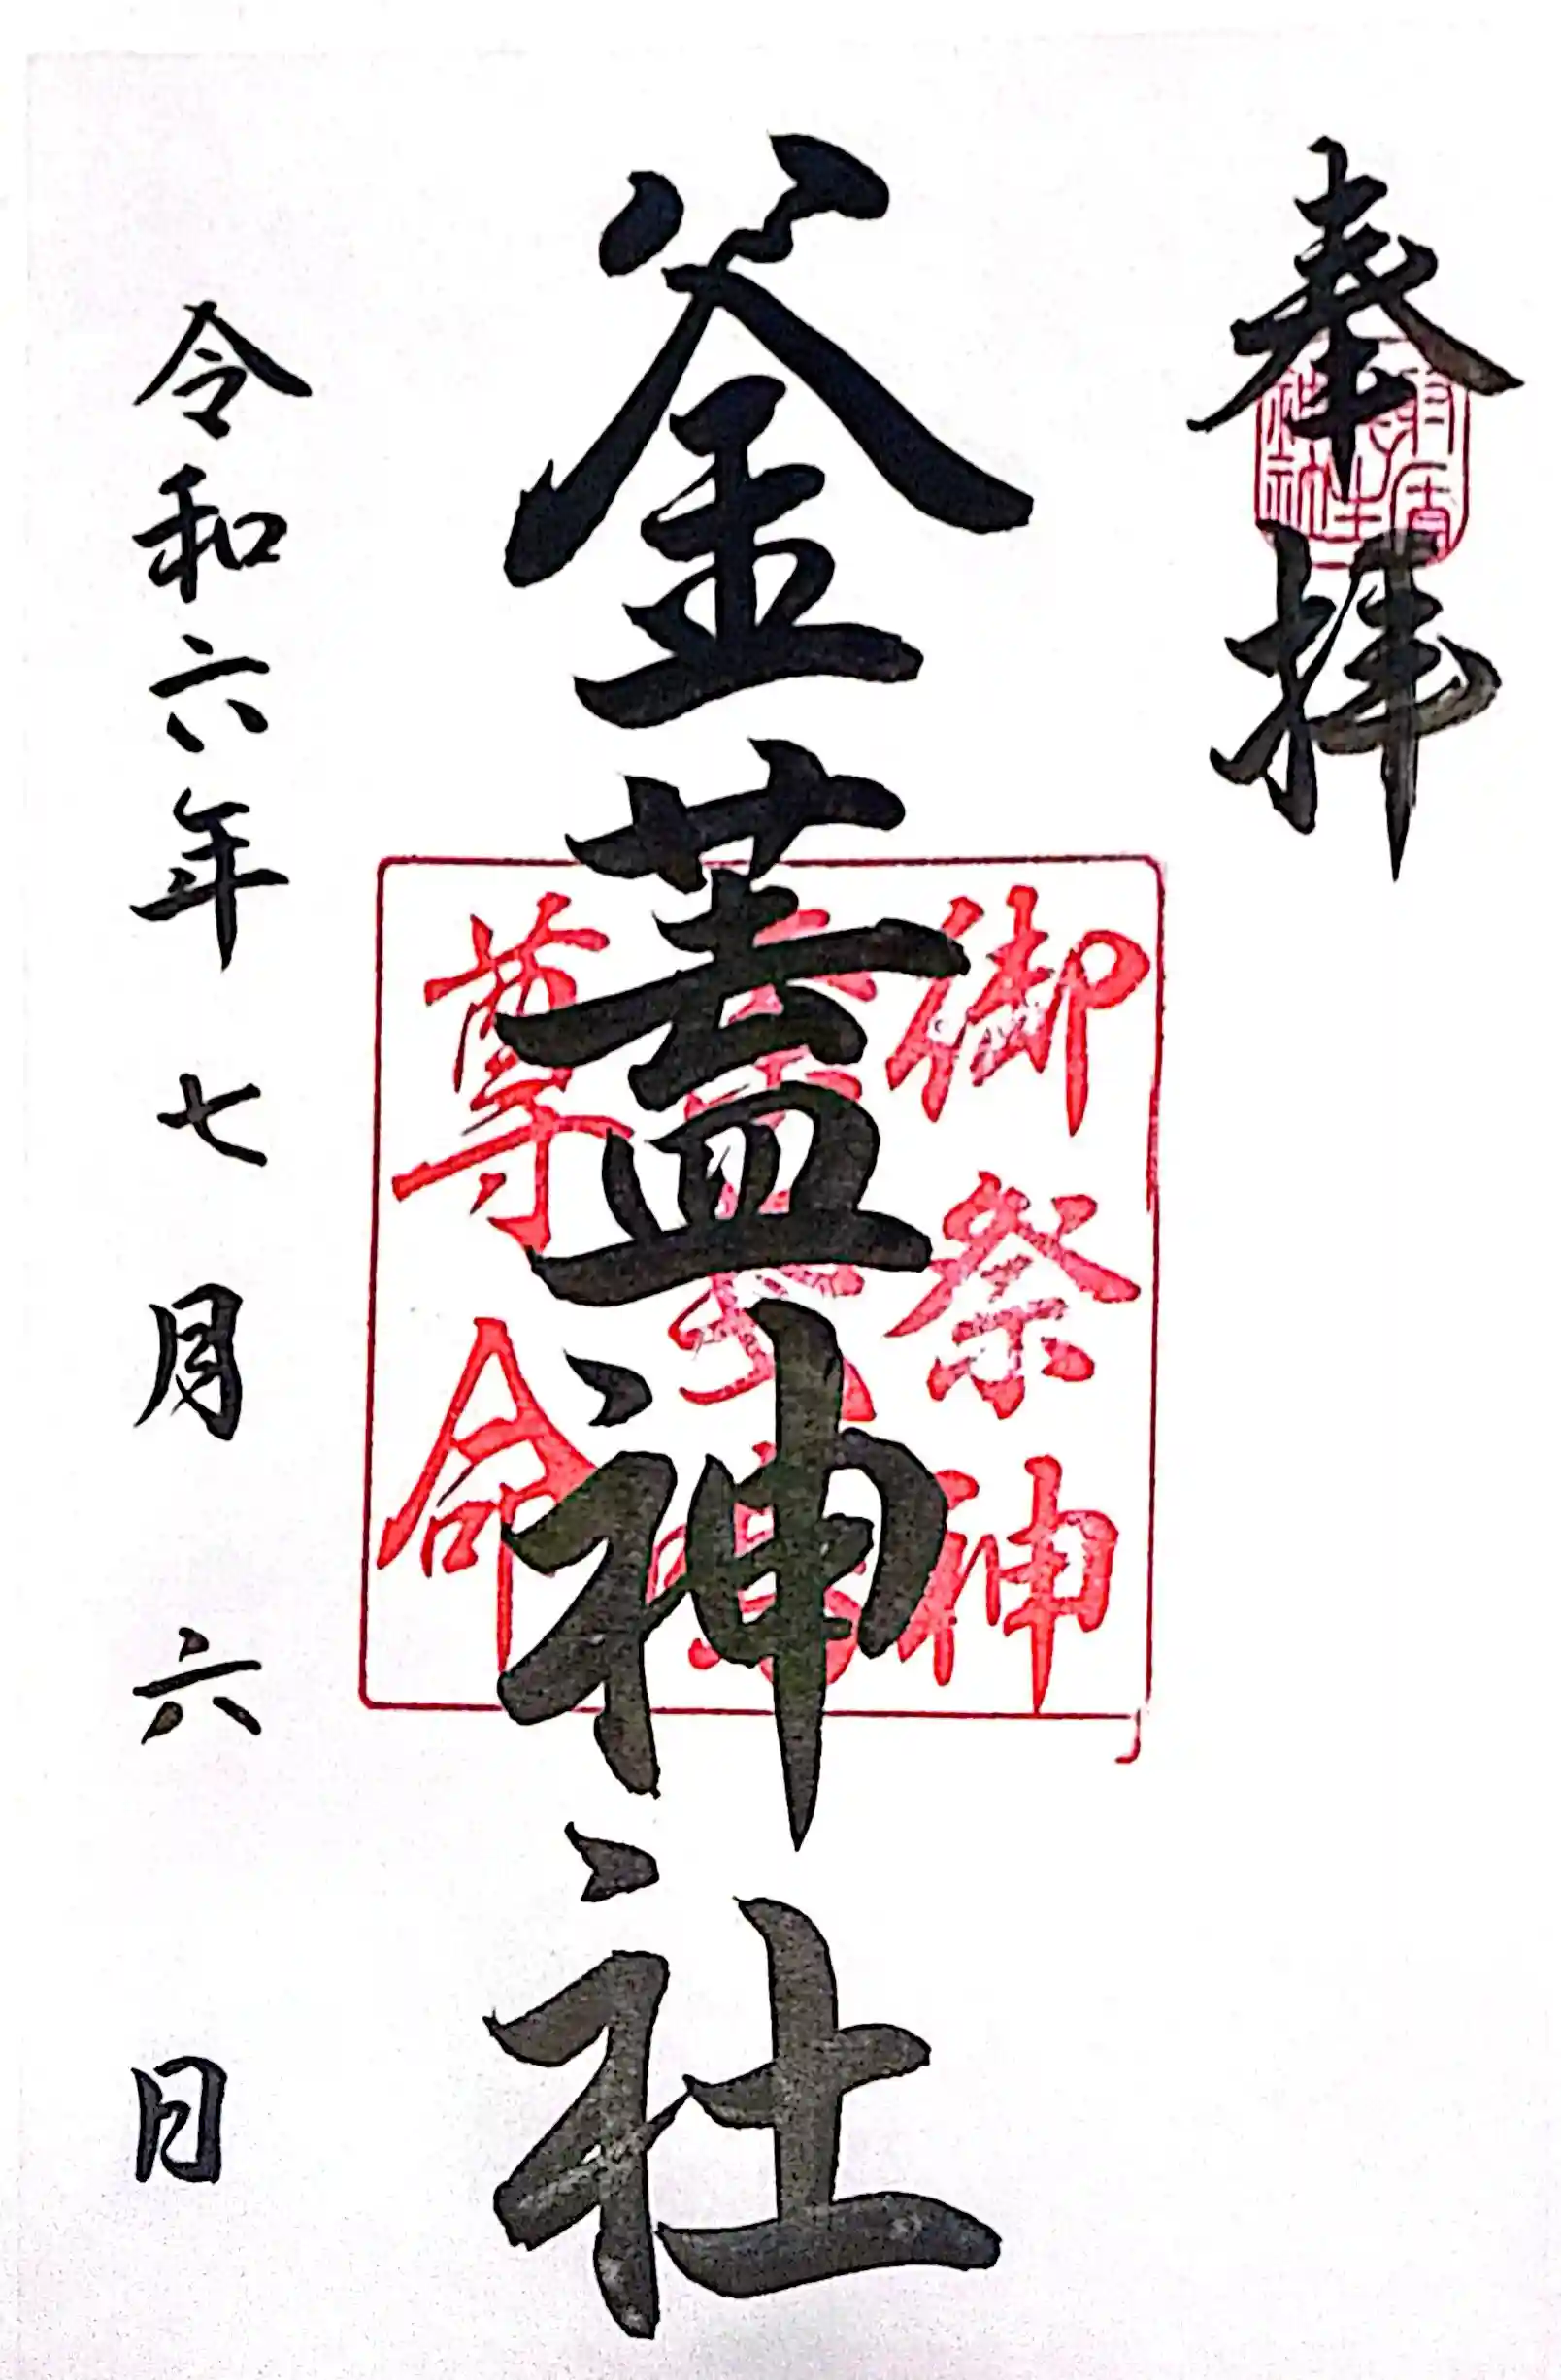 奉拝
釜蓋神社
御祭神
尊命
令和六年七月六日